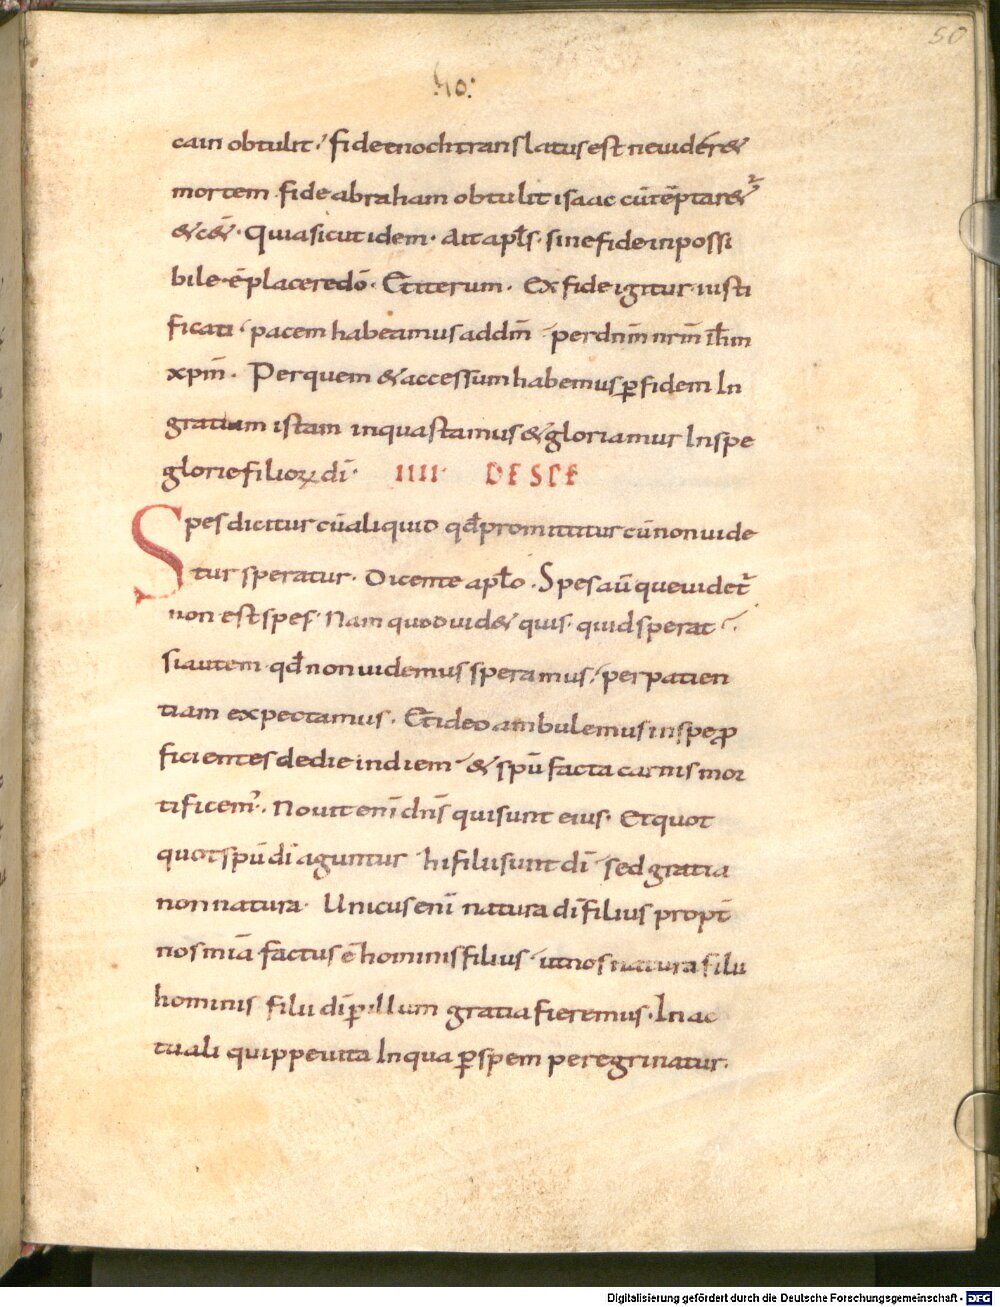 50
cain obtulit. fide enoch translatus est neuider&
mortem. fide abraham obtulit isaac cū tēptar&ur
&c&. Quia sicut idem. Ait apłs. sine fide inpossi
bile ē placere dō. Et iterum. Ex fide igitur iusti
ficati. pacem habeamus ad dm̄. per dnm̄ nrm̄ ih̄m
xpm̄. Per quem & accessum habemus ꝑ fidem In
gratiam istam in qua stamus & gloriamur In spe
glorie filioꝝ di. IIII. DE SPE
Spes dicitur cū aliquid qd̄ promittitur cū non uide
tur speratur. Dicente apło. Spes aū que uidet̄
non est spes. Nam quod uid& quis. quid sperat.
si autem qd̄ non uidemus speramus. per patien
tiam expectamus. Et ideo ambulemus in spe ꝓ
ficientes de die in diem. & spū facta carnis mor
tificem'. Nouit enī dn̄s qui sunt eius. Et quot
quot spū dī aguntur. hi filii sunt dī. sed gratia
non natura. Unicus enī natura dī filius propt̄
nos miā factus ē hominis filius. ut nos natura filii
hominis filii dī ꝑ illum gratia fieremus. In ac
tuali quippe uita In qua ꝑ spem peregrinatur.
Digitalisierung gefördert durch die Deutsche Forschungsgemeinschaft - DFG